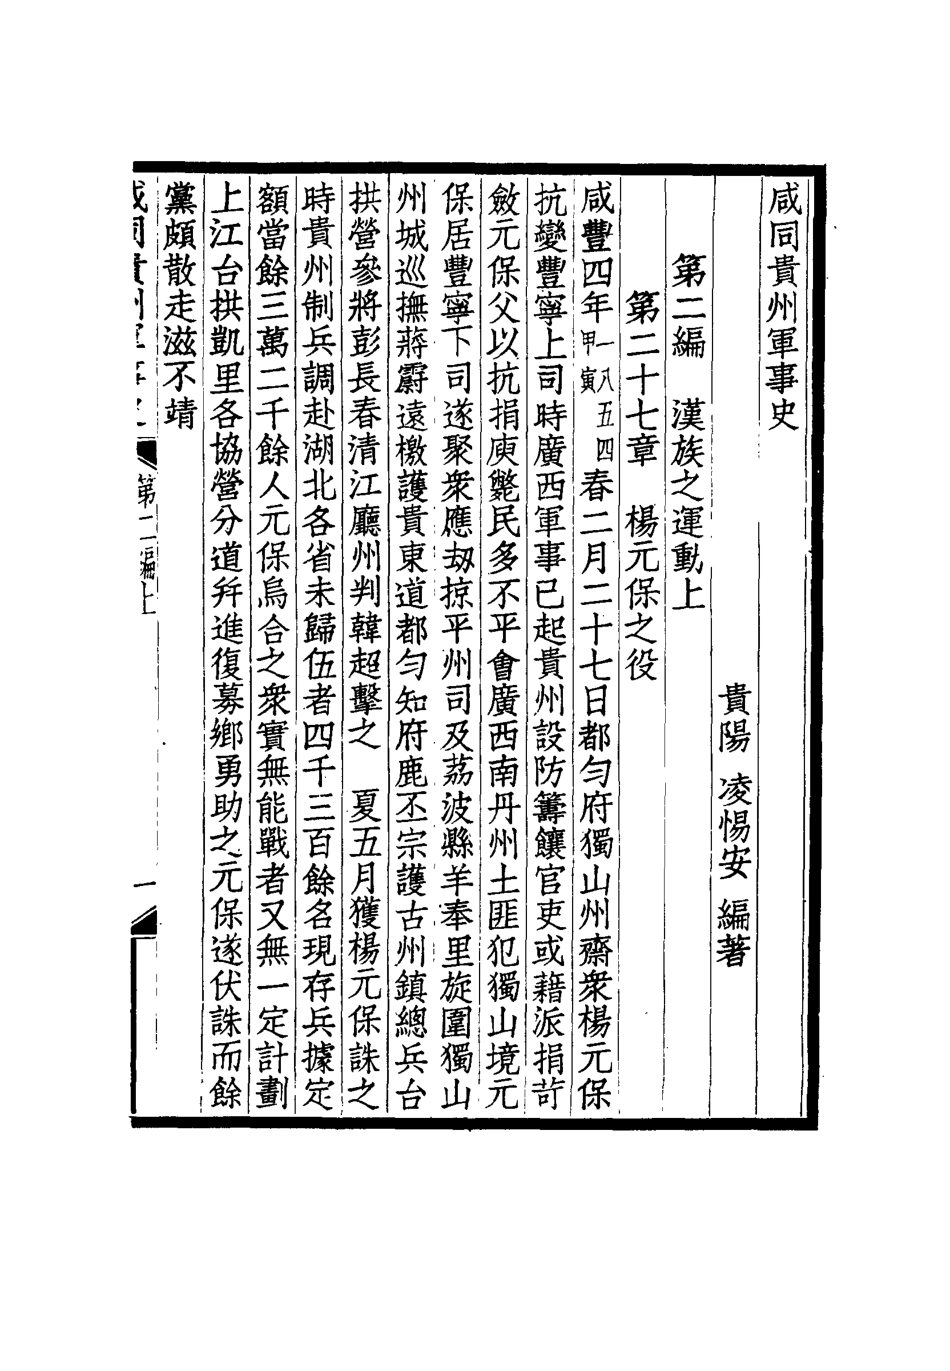 咸同貴州軍事史
貴陽 凌惕安 編著
第二編 漢族之運動上
第二十七章 楊元保之役
咸豐四年一八五四甲寅春二月二十七日都勻府獨山州齋衆楊元保
抗變豐寧上司時廣西軍事已起貴州設防籌饟官吏或藉派捐苛
斂元保父以抗捐庾斃民多不平會廣西南丹州土匪犯獨山境元
保居豐寧下司遂聚衆應刼掠平州司及荔波縣羊奉里旋圍獨山
州城巡撫蔣霨遠檄護貴東道都勻知府鹿丕宗護古州鎮總兵台
拱營參將彭長春清江廳州判韓超擊之 夏五月獲楊元保誅之
時貴州制兵調赴湖北各省未歸伍者四千三百餘名現存兵據定
額當餘三萬二千餘人元保烏合之衆實無能戰者又無一定計劃
上江台拱凱里各協營分道幷進復募鄉勇助之元保遂伏誅而餘
黨頗散走滋不靖
咸同貴州軍事史 第二編上 一